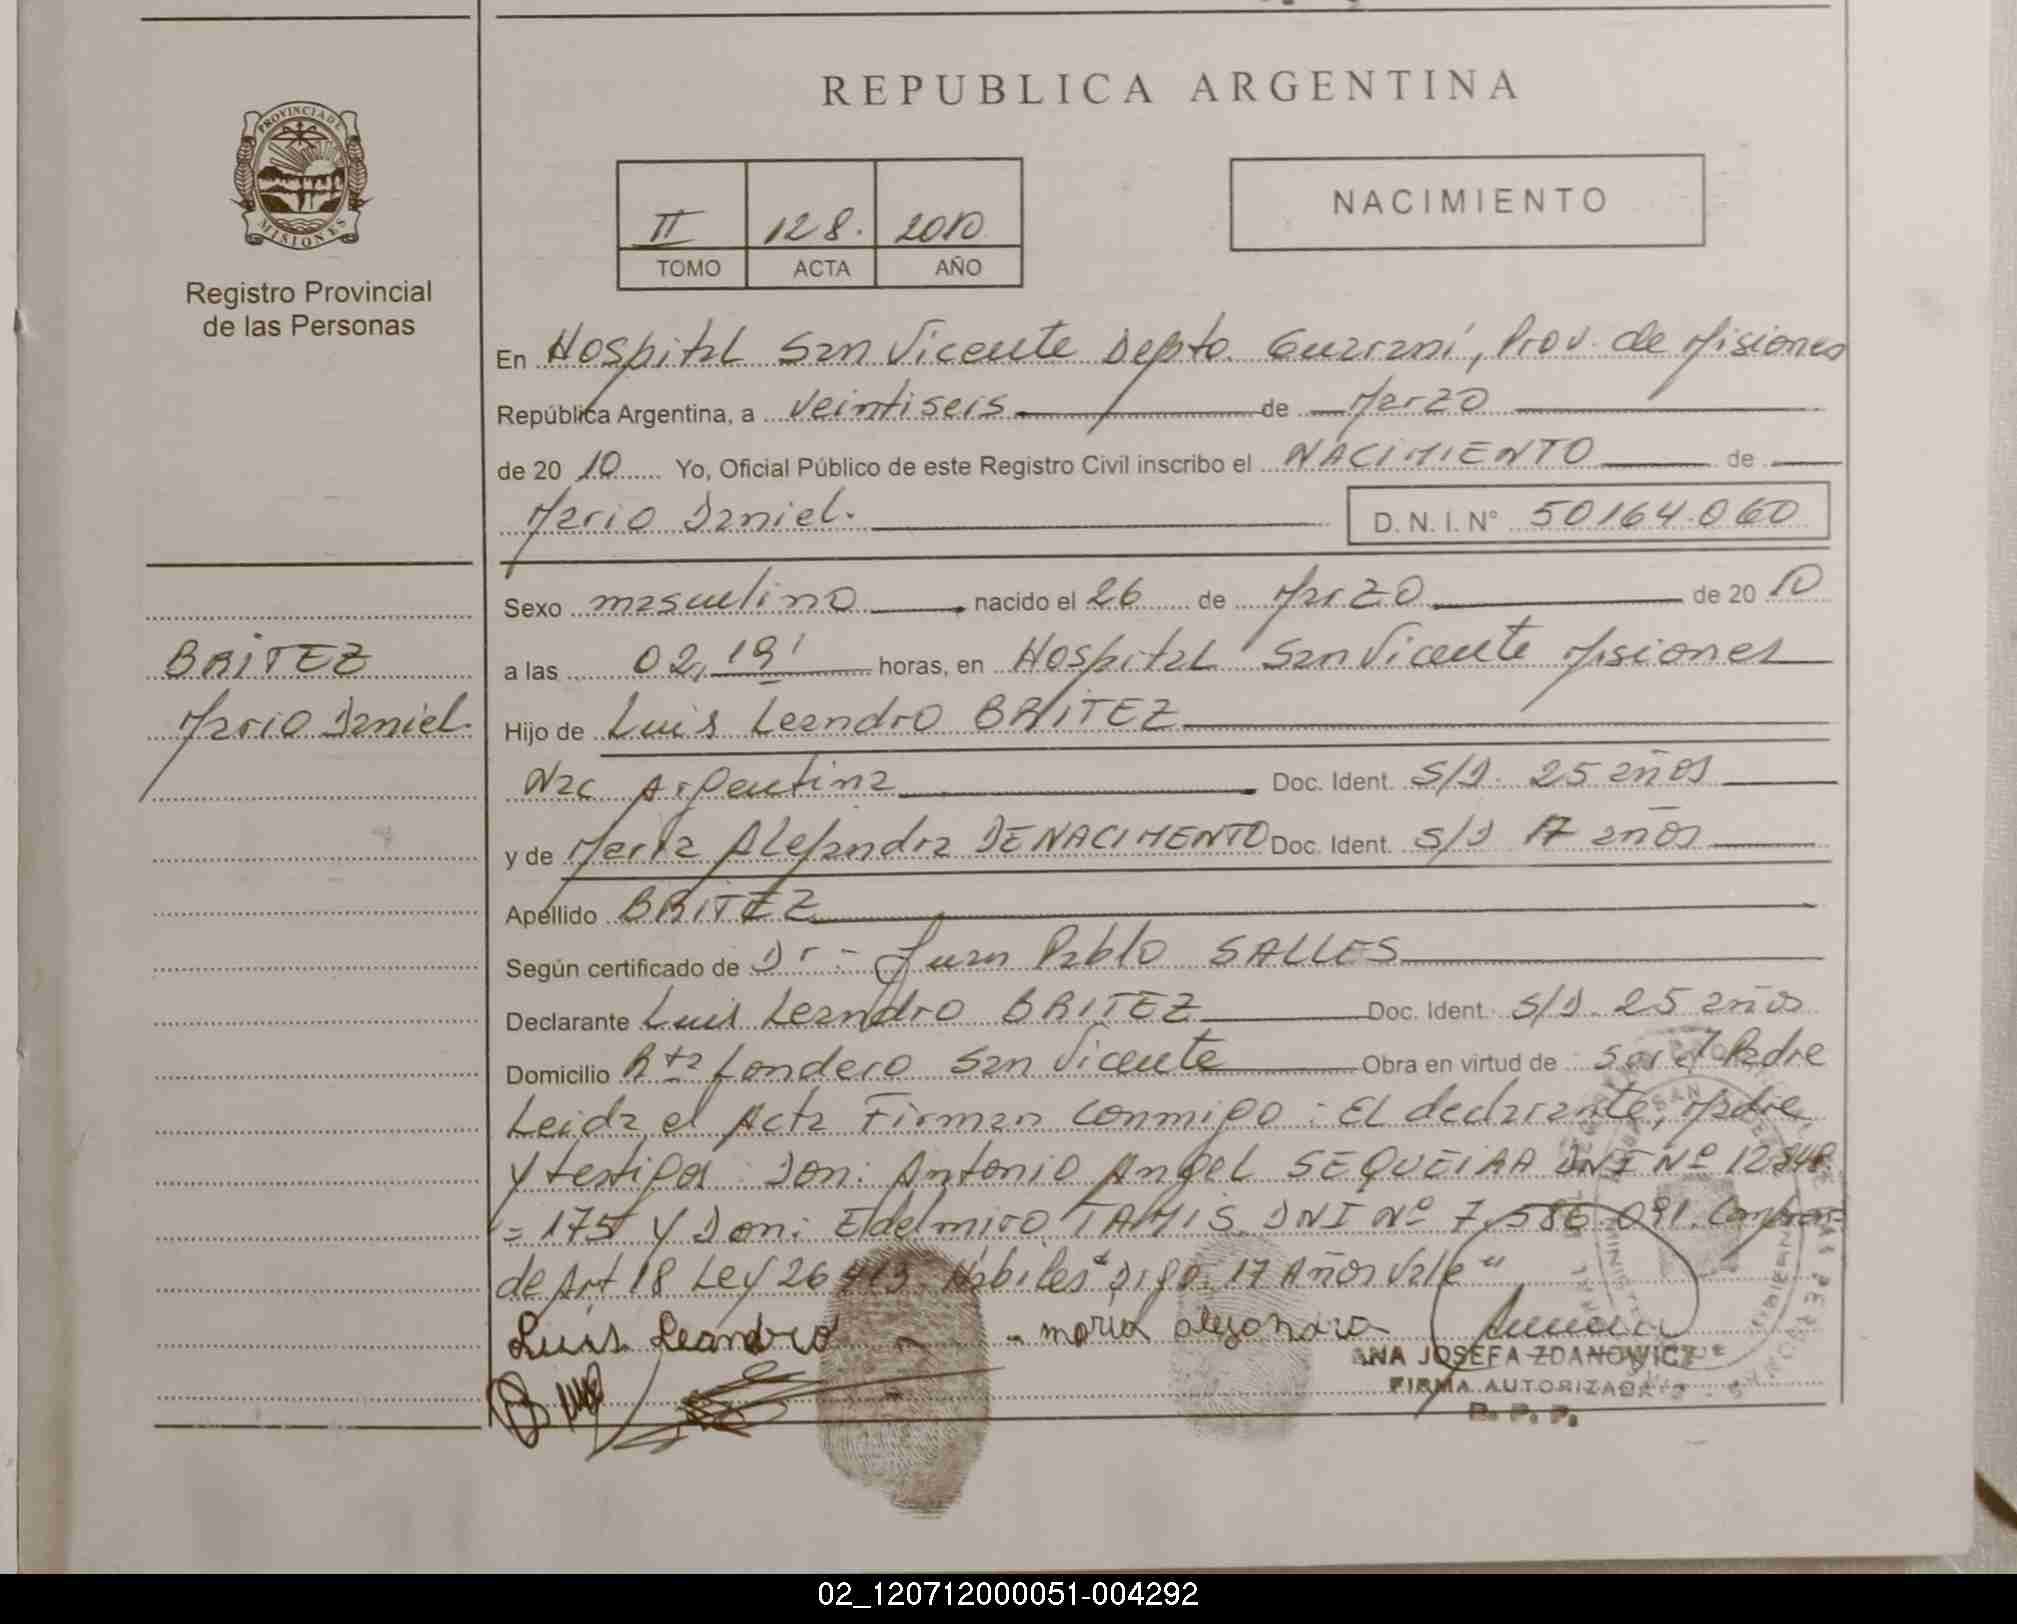 REPUBLICA ARGENTINA
PROVINCIA DE
MISIONES
Registro Provincial
de las Personas
II 128. 2010
TOMO ACTA AÑO
NACIMIENTO
En Hospital San Vicente Depto. Guaraní, Prov. de Misiones
República Argentina, a veintiseis de Marzo
de 20 10 Yo, Oficial Público de este Registro Civil inscribo el NACIMIENTO de
Mario Daniel.
D. N. I. N° 50164.060
BRITEZ
Mario Daniel.
Sexo masculino nacido el 26 de Marzo de 20 10
a las 02,19' horas, en Hospital San Vicente Misiones
Hijo de Luis Leandro BRITEZ
Nac Argentina Doc. Ident. S/D. 25 años
y de María Alejandra DENACIMENTO Doc. Ident. S/D 17 años
Apellido BRITEZ
Según certificado de Dr.- Juan Pablo SALLES
Declarante Luis Leandro BRITEZ Doc. Ident. S/D. 25 años
Domicilio Rta Fondero San Vicente Obra en virtud de ser el Padre
Leida el Acta Firman conmigo: El declarante, Madre
y testigos Don: Antonio Angel SEQUEIRA DNI Nº
=175 Y Don: Edelmiro TAMIS DNI Nº 7.586.091.
de Art 18 Ley 26.413. Hábiles" Digo: 17 Años Vale"
Luis Leandro maria alejandra
ANA JOSEFA ZDANOWICZ
FIRMA AUTORIZADA
R. P. P.
02_120712000051-004292